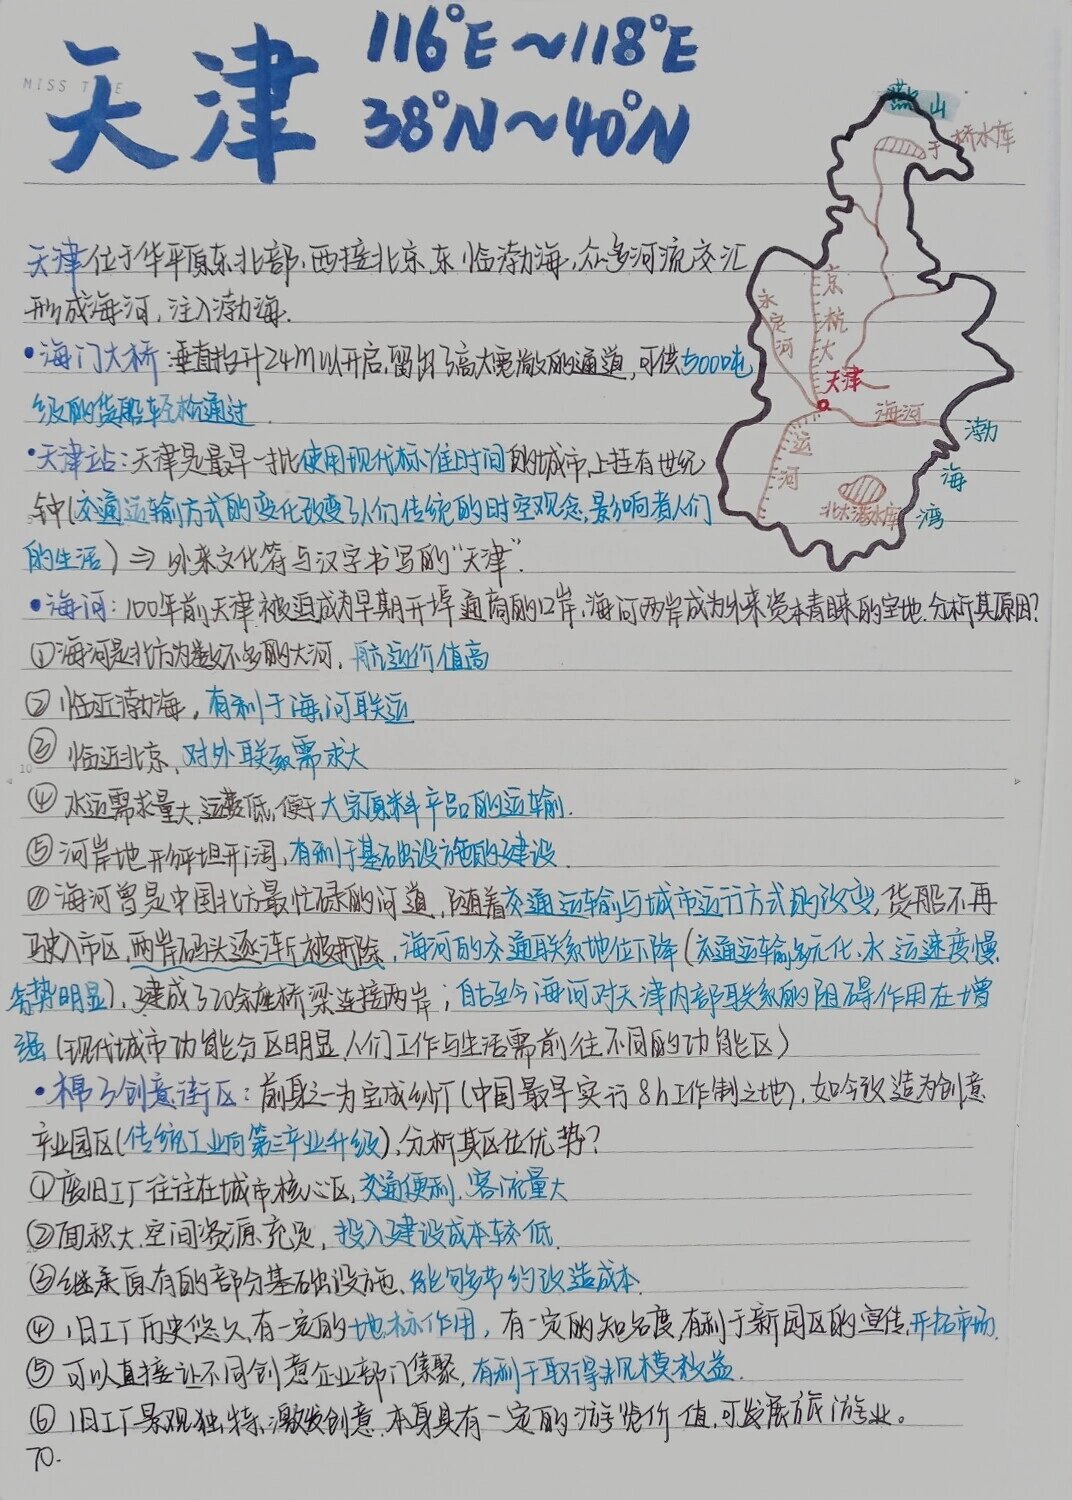 天津
116°E～118°E
38°N～40°N
MISS T E
燕山
于桥水库
永定河
京杭大
运河
天津
海河
渤海湾
北大港水库
天津位于华平原东北部，西接北京，东临渤海，众多河流交汇
形成海河，注入渤海.
•海门大桥：垂直抬升24m以开启，留出了高大宽敞的通道，可供5000吨
级的货船轻松通过.
•天津站：天津是最早一批使用现代标准时间的城市，上挂有世纪
钟(交通运输方式的变化改变了人们传统的时空观念，影响着人们
的生活)⇒外来文化符与汉字书写的“天津”.
•海河：100年前，天津被迫成为早期开埠通商的口岸，海河两岸成为外来资本青睐的宝地.分析其原因?
①海河是北方为数不多的大河，航运价值高
②临近渤海，有利于海河联运
③临近北京，对外联系需求大
④水运需求量大，运费低，便于大宗原料产品的运输.
⑤河岸地形平坦开阔，有利于基础设施的建设.
海河曾是中国北方最忙碌的河道，随着交通运输与城市运行方式的改变，货船不再
驶入市区，两岸码头逐渐被拆除，海河的交通联系地位下降(交通运输多元化，水运速度慢
劣势明显)，建成了20余座桥梁连接两岸；自古至今海河对天津内部联系的阻碍作用在增
强(现代城市功能分区明显，人们工作与生活需前往不同的功能区)
•棉3创意街区：前身之一为宝成纱厂(中国最早实行8h工作制之地)，如今改造为创意
产业园区(传统工业向第三产业升级)，分析其区位优势?
①废旧工厂往往在城市核心区，交通便利，客流量大
②面积大，空间资源充足，投入建设成本较低.
③继承原有的部分基础设施，能够节约改造成本.
④旧工厂历史悠久，有一定的地标作用，有一定的知名度，有利于新园区的宣传，开拓市场.
⑤可以直接让不同创意企业部门集聚，有利于取得规模效益.
⑥旧工厂景观独特，激发创意，本身具有一定的游览价值，可发展旅游业。
70.